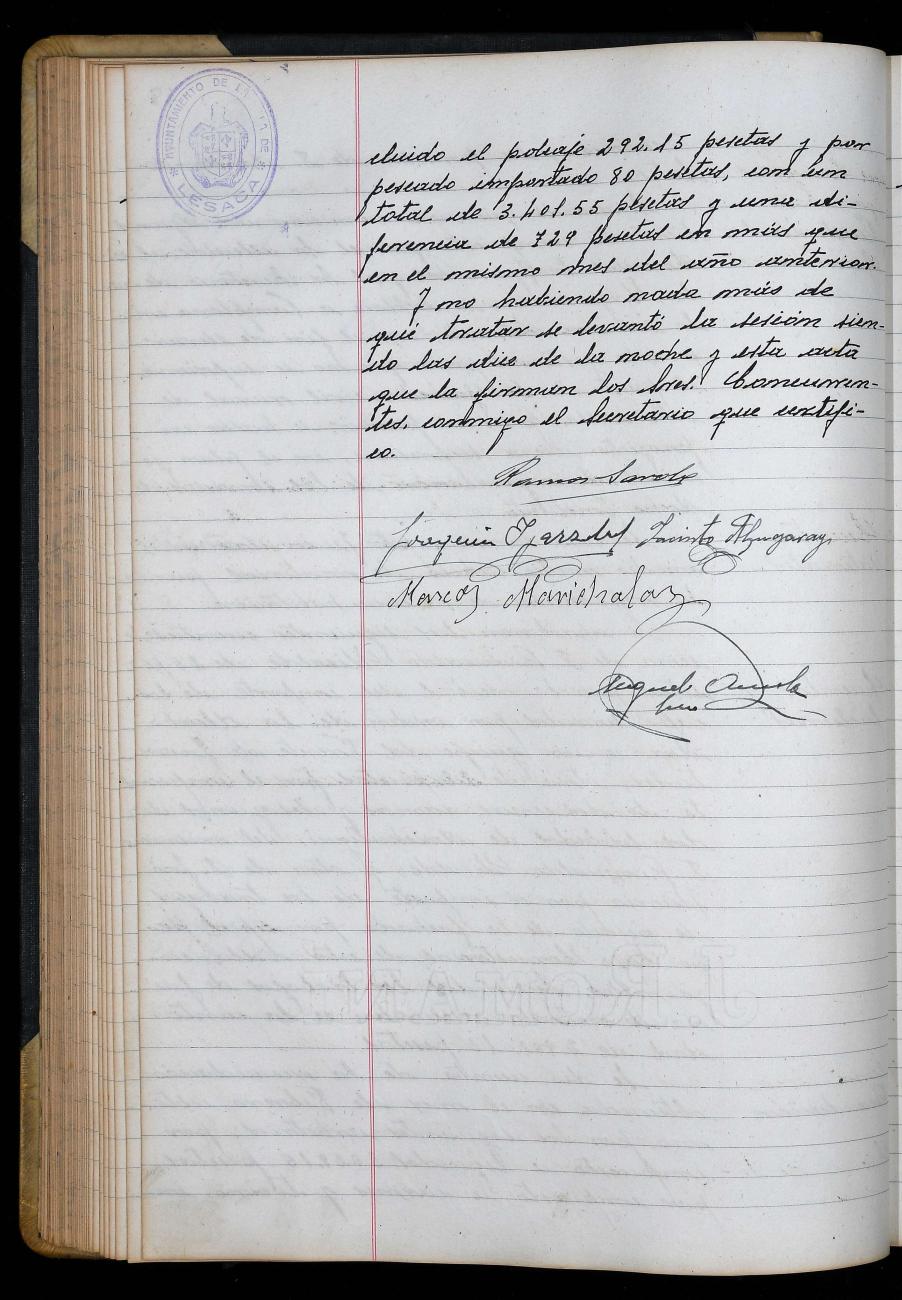 AYUNTAMIENTO DE LA DE
LESACA
cluido el poteaje 292.15 pesetas y por
pescado importado 80 pesetas, con un
total de 3.401.55 pesetas y una di-
ferencia de 729 pesetas en más que
en el mismo mes del año anterior.
Y no habiendo nada más de
qué tratar se levantó la sesión sien-
do las diez de la noche y esta acta
que la firman los Sres. Concurren-
tes, conmigo el Secretario que certifi-
co.
Ramón
Joaquin Jacinto Alzugaray
Marcos Marichalar
Miguel
J. ROMANI